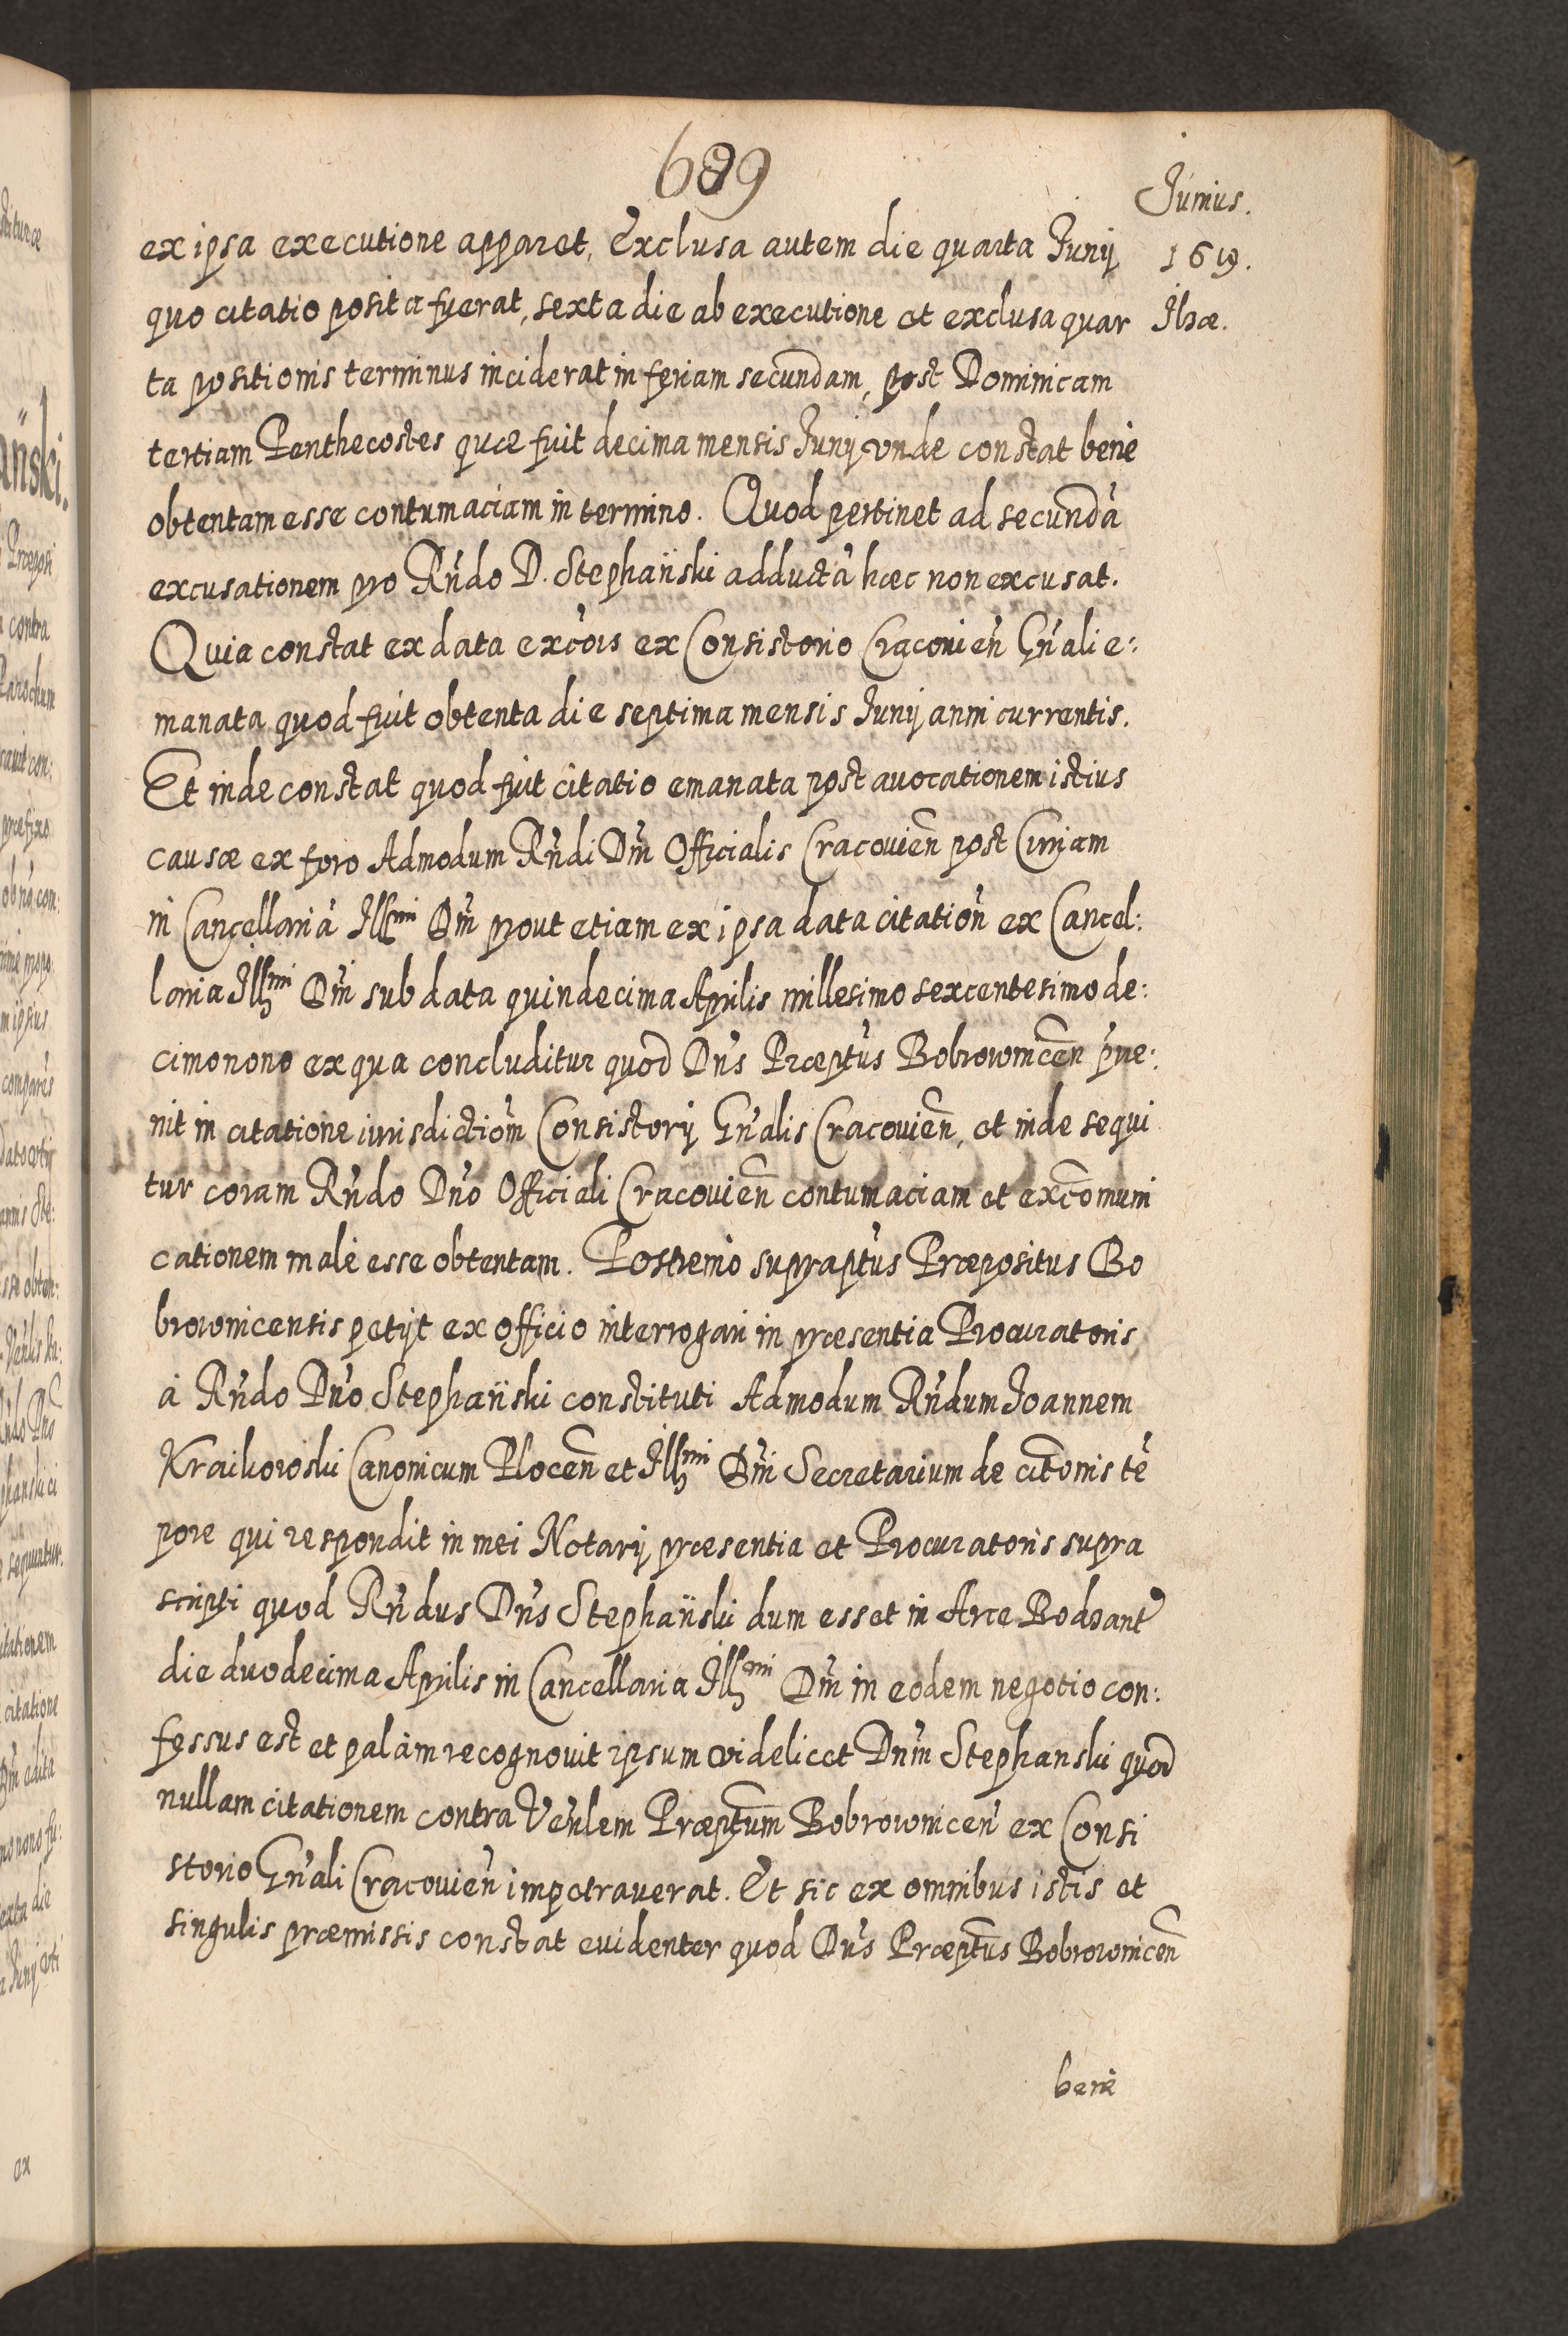 689
Junius.
1619.
Ilzæ.
ex ipsa executione apparet, Exclusa autem die quarta Junij
quo citatio posita fuerat, sexta die ab executione et exclusa quar
ta positionis terminus inciderat in feriam secundam, post Dominicam
tertiam Penthecostes quæ fuit decima mensis Junij vnde constat benè
obtentam esse contumaciam in termino. Quod pertinet ad secundã
excusationem pro Rñdo D. Stephański adductã hæc non excusat.
Quia constat ex data excõis ex Consistorio Cracovieñ Gñali e:
manata quod fuit obtenta die septima mensis Junij anni currentis.
Et inde constat quod fuit citatio emanata post auocationem istius
causæ ex foro Admodum Rñdi Dñi Officialis Cracovieñ post Curiam
in Cancellariã Illmi Dñi prout etiam ex ipsa data citatioñ ex Cancel:
laria Illmi Dñi sub data quindecima Aprilis millesimo sexcentesimo de:
cimonono ex qua concluditur quod Dñs Præptus Bobrowniceñ p̃ue:
nit in citatione iurisdictiõm Consistorij Gñalis Cracovieñ, et inde sequi
tur coram Rñdo Dño Officiali Cracovieñ contumaciam et excõmuni
cationem malè esse obtentam. Postremò supraptus Præpositus Bo
brownicensis petijt ex officio interrogari in præsentia Procuratoris
à Rñdo Dño Stephański constituti Admodum Rñdum Joannem
Kraikowski Canonicum Ploceñ et Illmi Dñi Secretarium de citõnis tẽ
pore qui respondit in mei Notarij præsentia et Procuratoris supra
scripti quod Rñdus Dñs Stephański dum esset in Arce Bodzant
die duodecima Aprilis in Cancellaria Illmi Dñi in eodem negotio con:
fessus est et palàm recognouit ipsum videlicet Dnm̃ Stephanski quod
nullam citationem contra Veñlem Præptum Bobrowniceñ ex Consi
storio Gñali Cracovieñ impetraverat. Et sic ex omnibus istis et
singulis præmissis constat euidenter quod Dñs Præptus Bobrowniceñ
benè